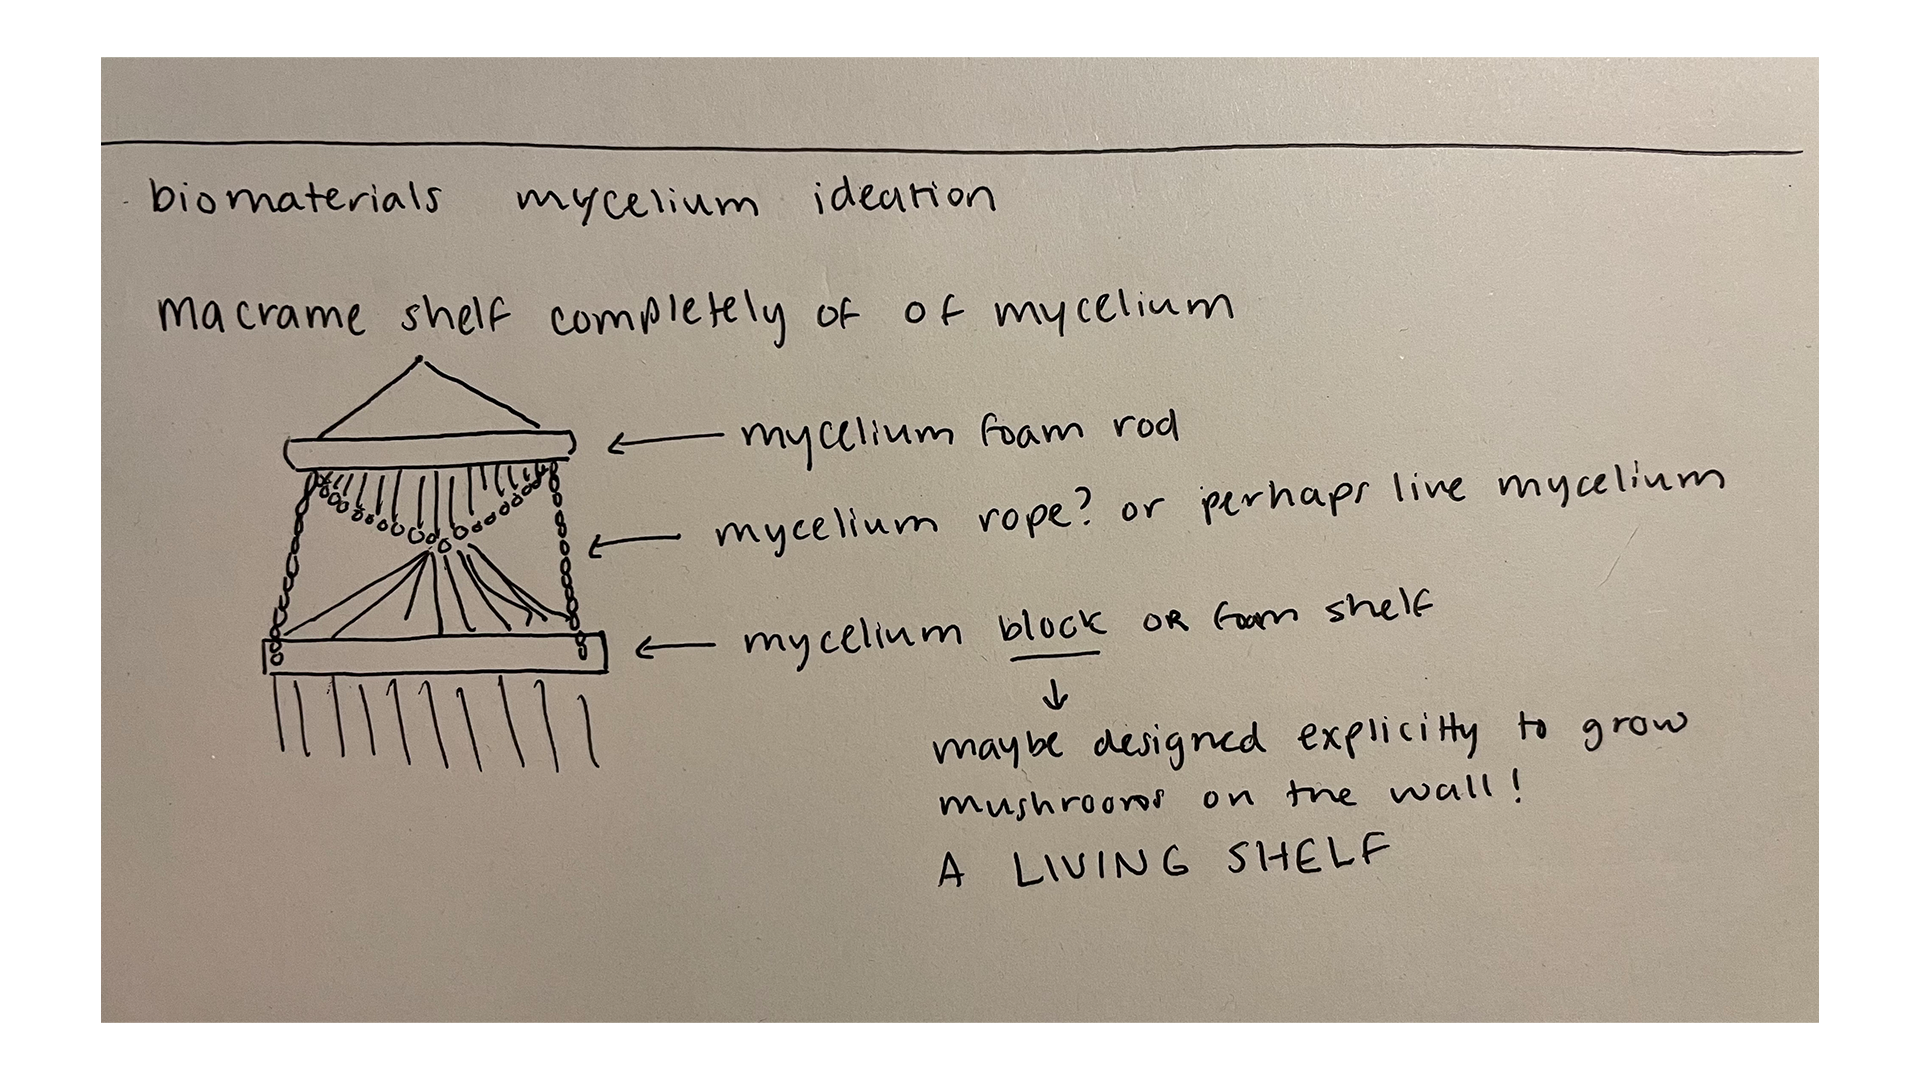 biomaterials mycelium ideation
macrame shelf completely of of mycelium
mycelium foam rod
mycelium rope? or perhaps live mycelium
mycelium block OR foam shelf
maybe designed explicitly to grow
mushrooms on the wall!
A LIVING SHELF